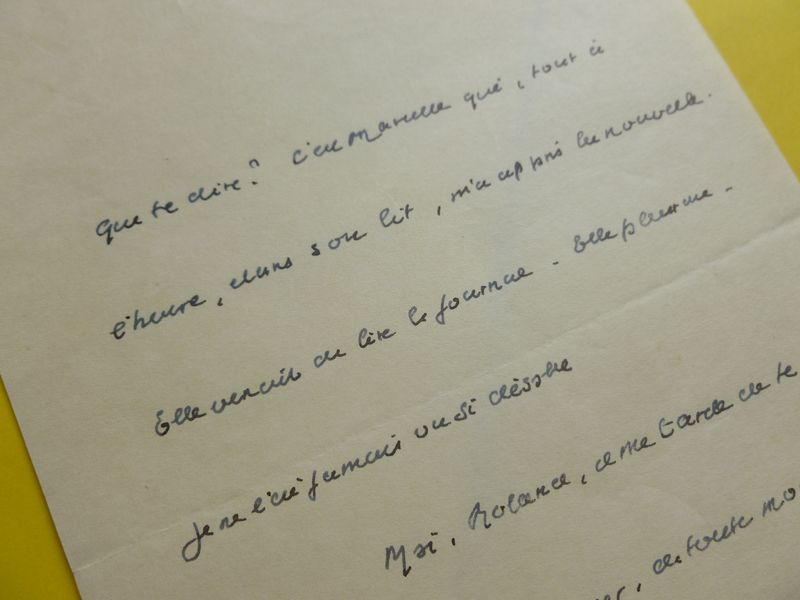 Que te dire? C'est Marcelle qui, tout à
l'heure, dans son lit, m'a appris la nouvelle.
Elle venait de lire le journal - Elle pleurait -
Je ne l'ai jamais vu si désolée
Moi, Roland, il me tarde de te
de toute mon